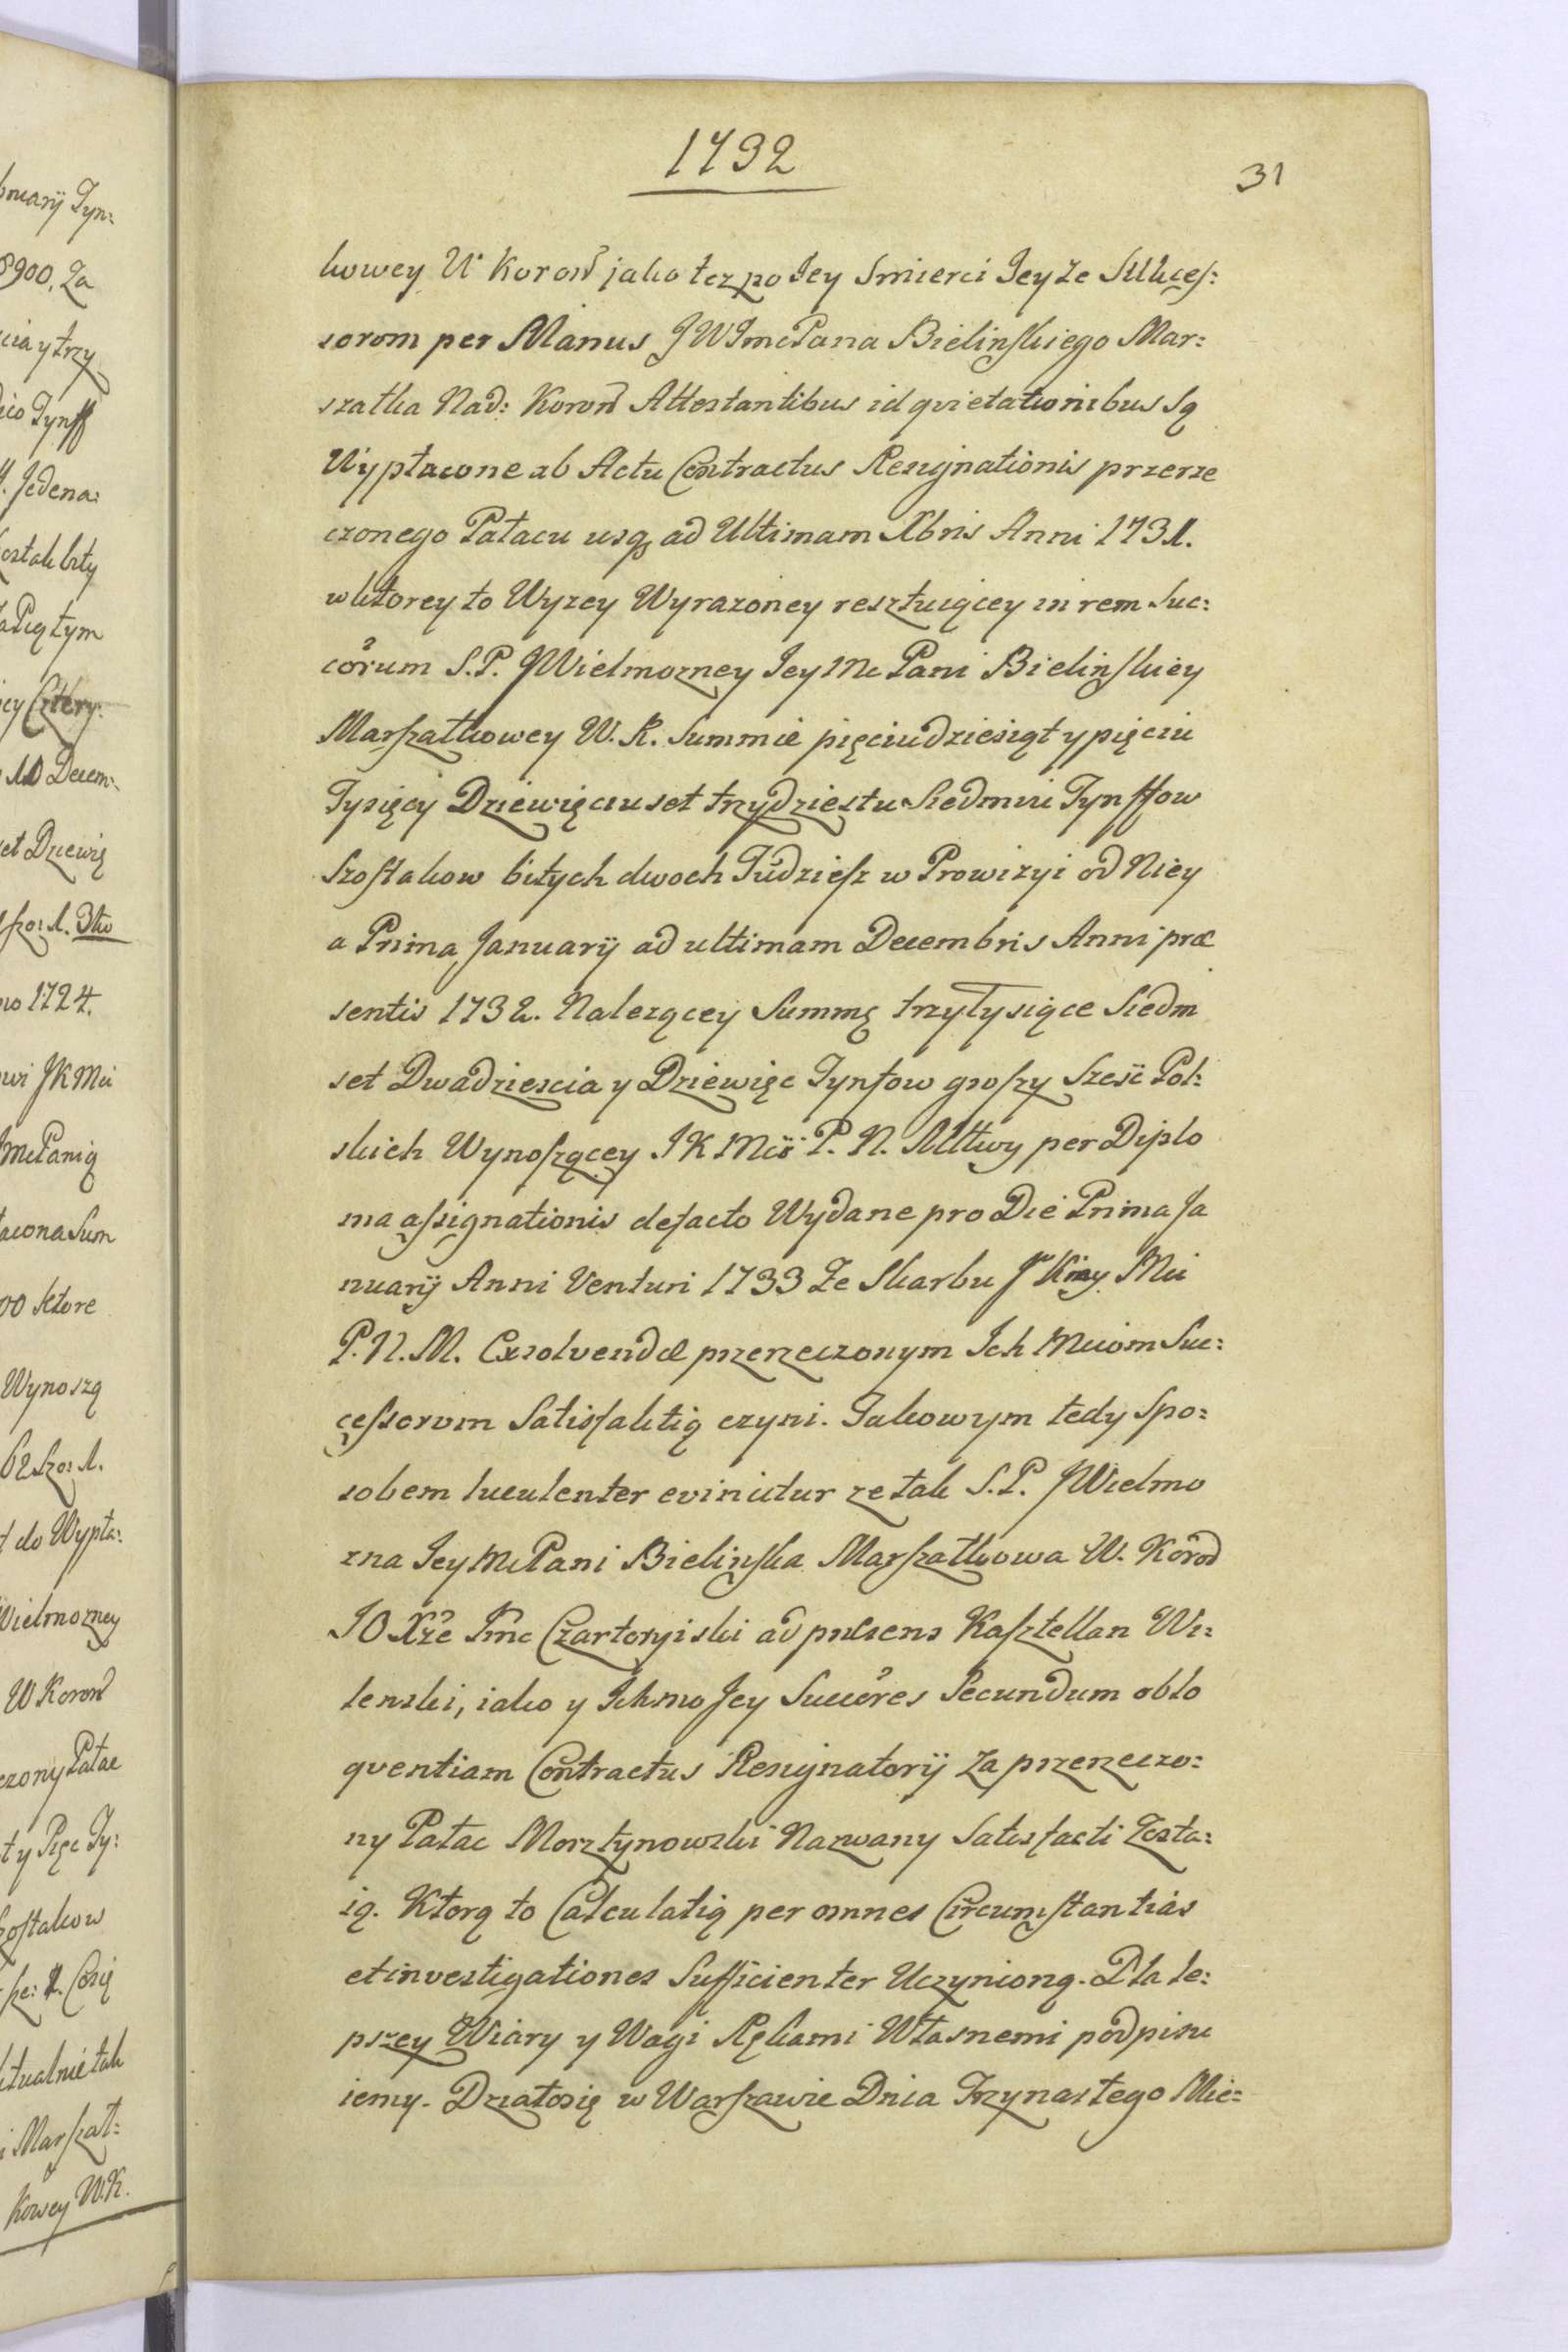 1732
31
kowey W Koroñ jako tez po Jey Smierci Jey ze Sukces:
sorom per Manus JWJmcPana Bielinskiego Mar:
szałka Nad: Koroñ Attestantibus id qvietationibus są
Wypłacone ab Actu Contractus Resignationis przerze
czonego Pałacu usq ad Ultimam Xbris Anni 1731.
w ktorey to Wyzey Wyrazoney resztuiącey in rem Suc:
corum S.P. JWielmozney Jey Mc Pani Bielinskiey
Marszałkowey W. K. Summie pięciudziesiąt y pięciu
Tysięcy Dziewięciuset trzydziestu Siedmiu Tynffow
Szostakow bitych dwoch Tudziesz w Prowizyi od Niey
a Prima Januarÿ ad ultimam Decembris Anni præ
sentis 1732. Nalezącey Summę trzy tysiące Siedm
set Dwadziescia y Dziewięc Tynfow groszy Szesc Pol:
skich Wynoszącey J K Mci P. N. Mttwy per Diplo
ma assignationis defacto Wydane pro Die Prima Ja
nuarÿ Anni Venturi 1733 Ze Skarbu J Kiey Mci
P. N. M. Exsolvendæ przerzeczonym Ich Mciom Suc:
cessorum Satisfaktią czyni. Takowym tedy spo:
sobem luculenter evincitur ze tak S.P. JWielmo
zna Jey Mc Pani Bielinska Marszałkowa W. Koroñ
JO Xże Jmc Czartoryiski ad præsens Kasztellan Wi:
lenski, iako y Ichmo Jey Succores Secundum oblo
qventiam Contractus Resignatorÿ Za przerzeczo:
ny Pałac Morsztynowski Nazwany Satisfacti Zosta:
ią. Ktorą to Calculatią per omnes Circumstantias
et investigationes Sufficienter Uczynioną. Dla le:
pszey Wiary y Wagi Rękami Własnemi podpisu
iemy. Działosię w Warszawie Dnia Trzynastego Mie: